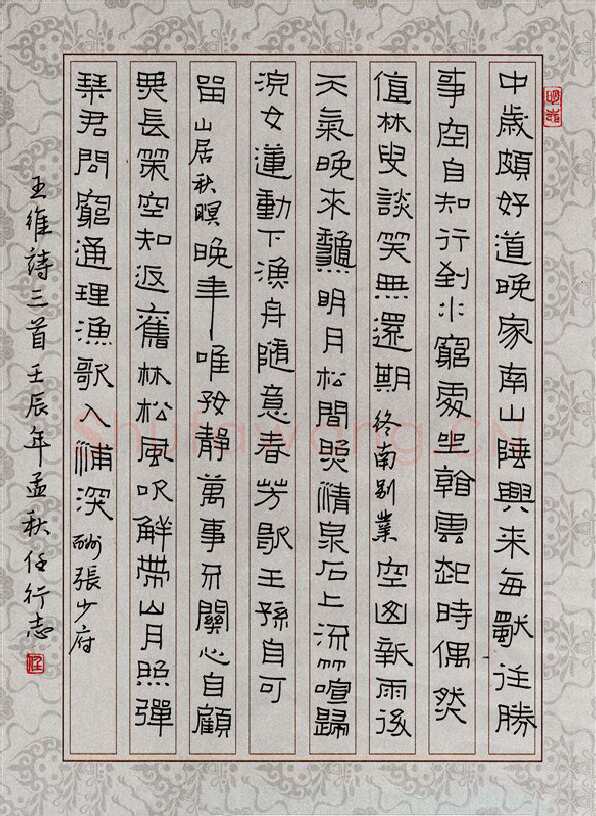 中歲頗好道晚家南山陲興来每獨往勝
事空自知行到水窮處坐看雲起時偶然
值林叟談笑無還期 終南别業 空山新雨後
天氣晚来龝明月松間照清泉石上流竹喧歸
浣女蓮動下漁舟隨意春芳歇王孫自可
留 山居秋暝 晚年唯好靜萬事不關心自顧
無長策空知返舊林松風吹解帶山月照彈
琴君問窮通理漁歌入浦深 酬張少府
王維詩三首壬辰年孟秋任行志